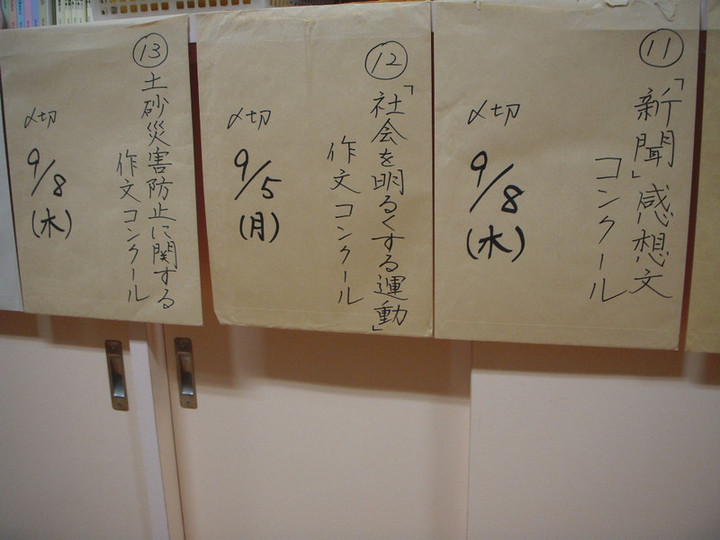 ⑪
「新聞」感想文
コンクール
〆切
9/8
(木)
⑫
「社会を明るくする運動」
作文コンクール
〆切
9/5
(月)
⑬
土砂災害防止に関する
作文コンクール
〆切
9/8
(木)